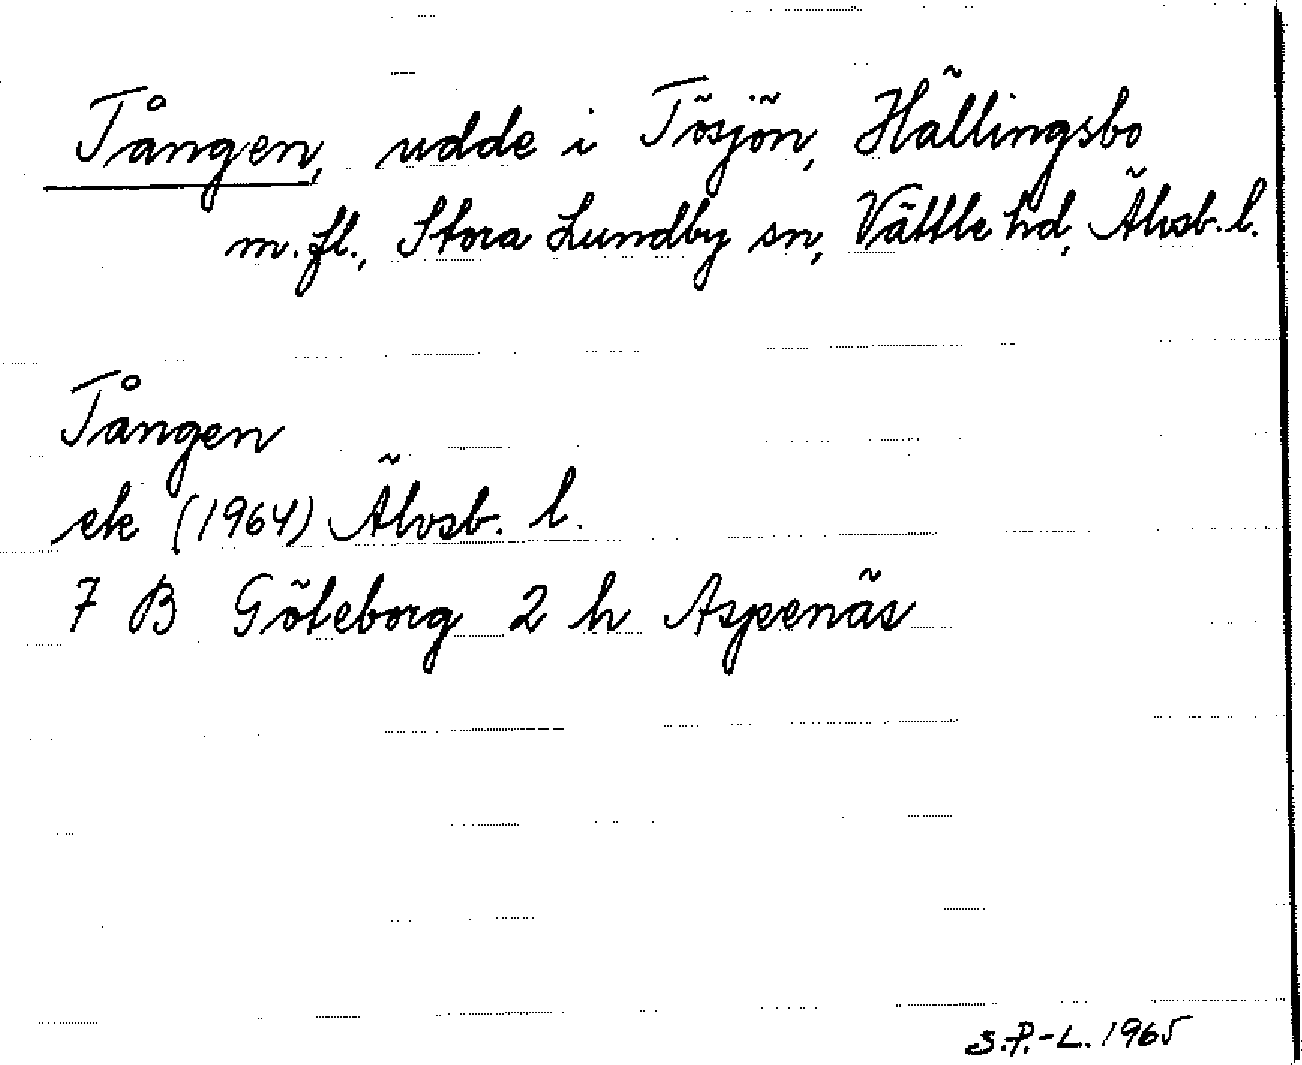 Tången, udde i Tösjön, Hällingsbo
m. fl., Stora Lundby sn, Vättle hd, Älvsb. l.
Tången
ek (1964) Älvsb. l.
7 B Göteborg 2 h Aspenäs
S.P.-L. 1965